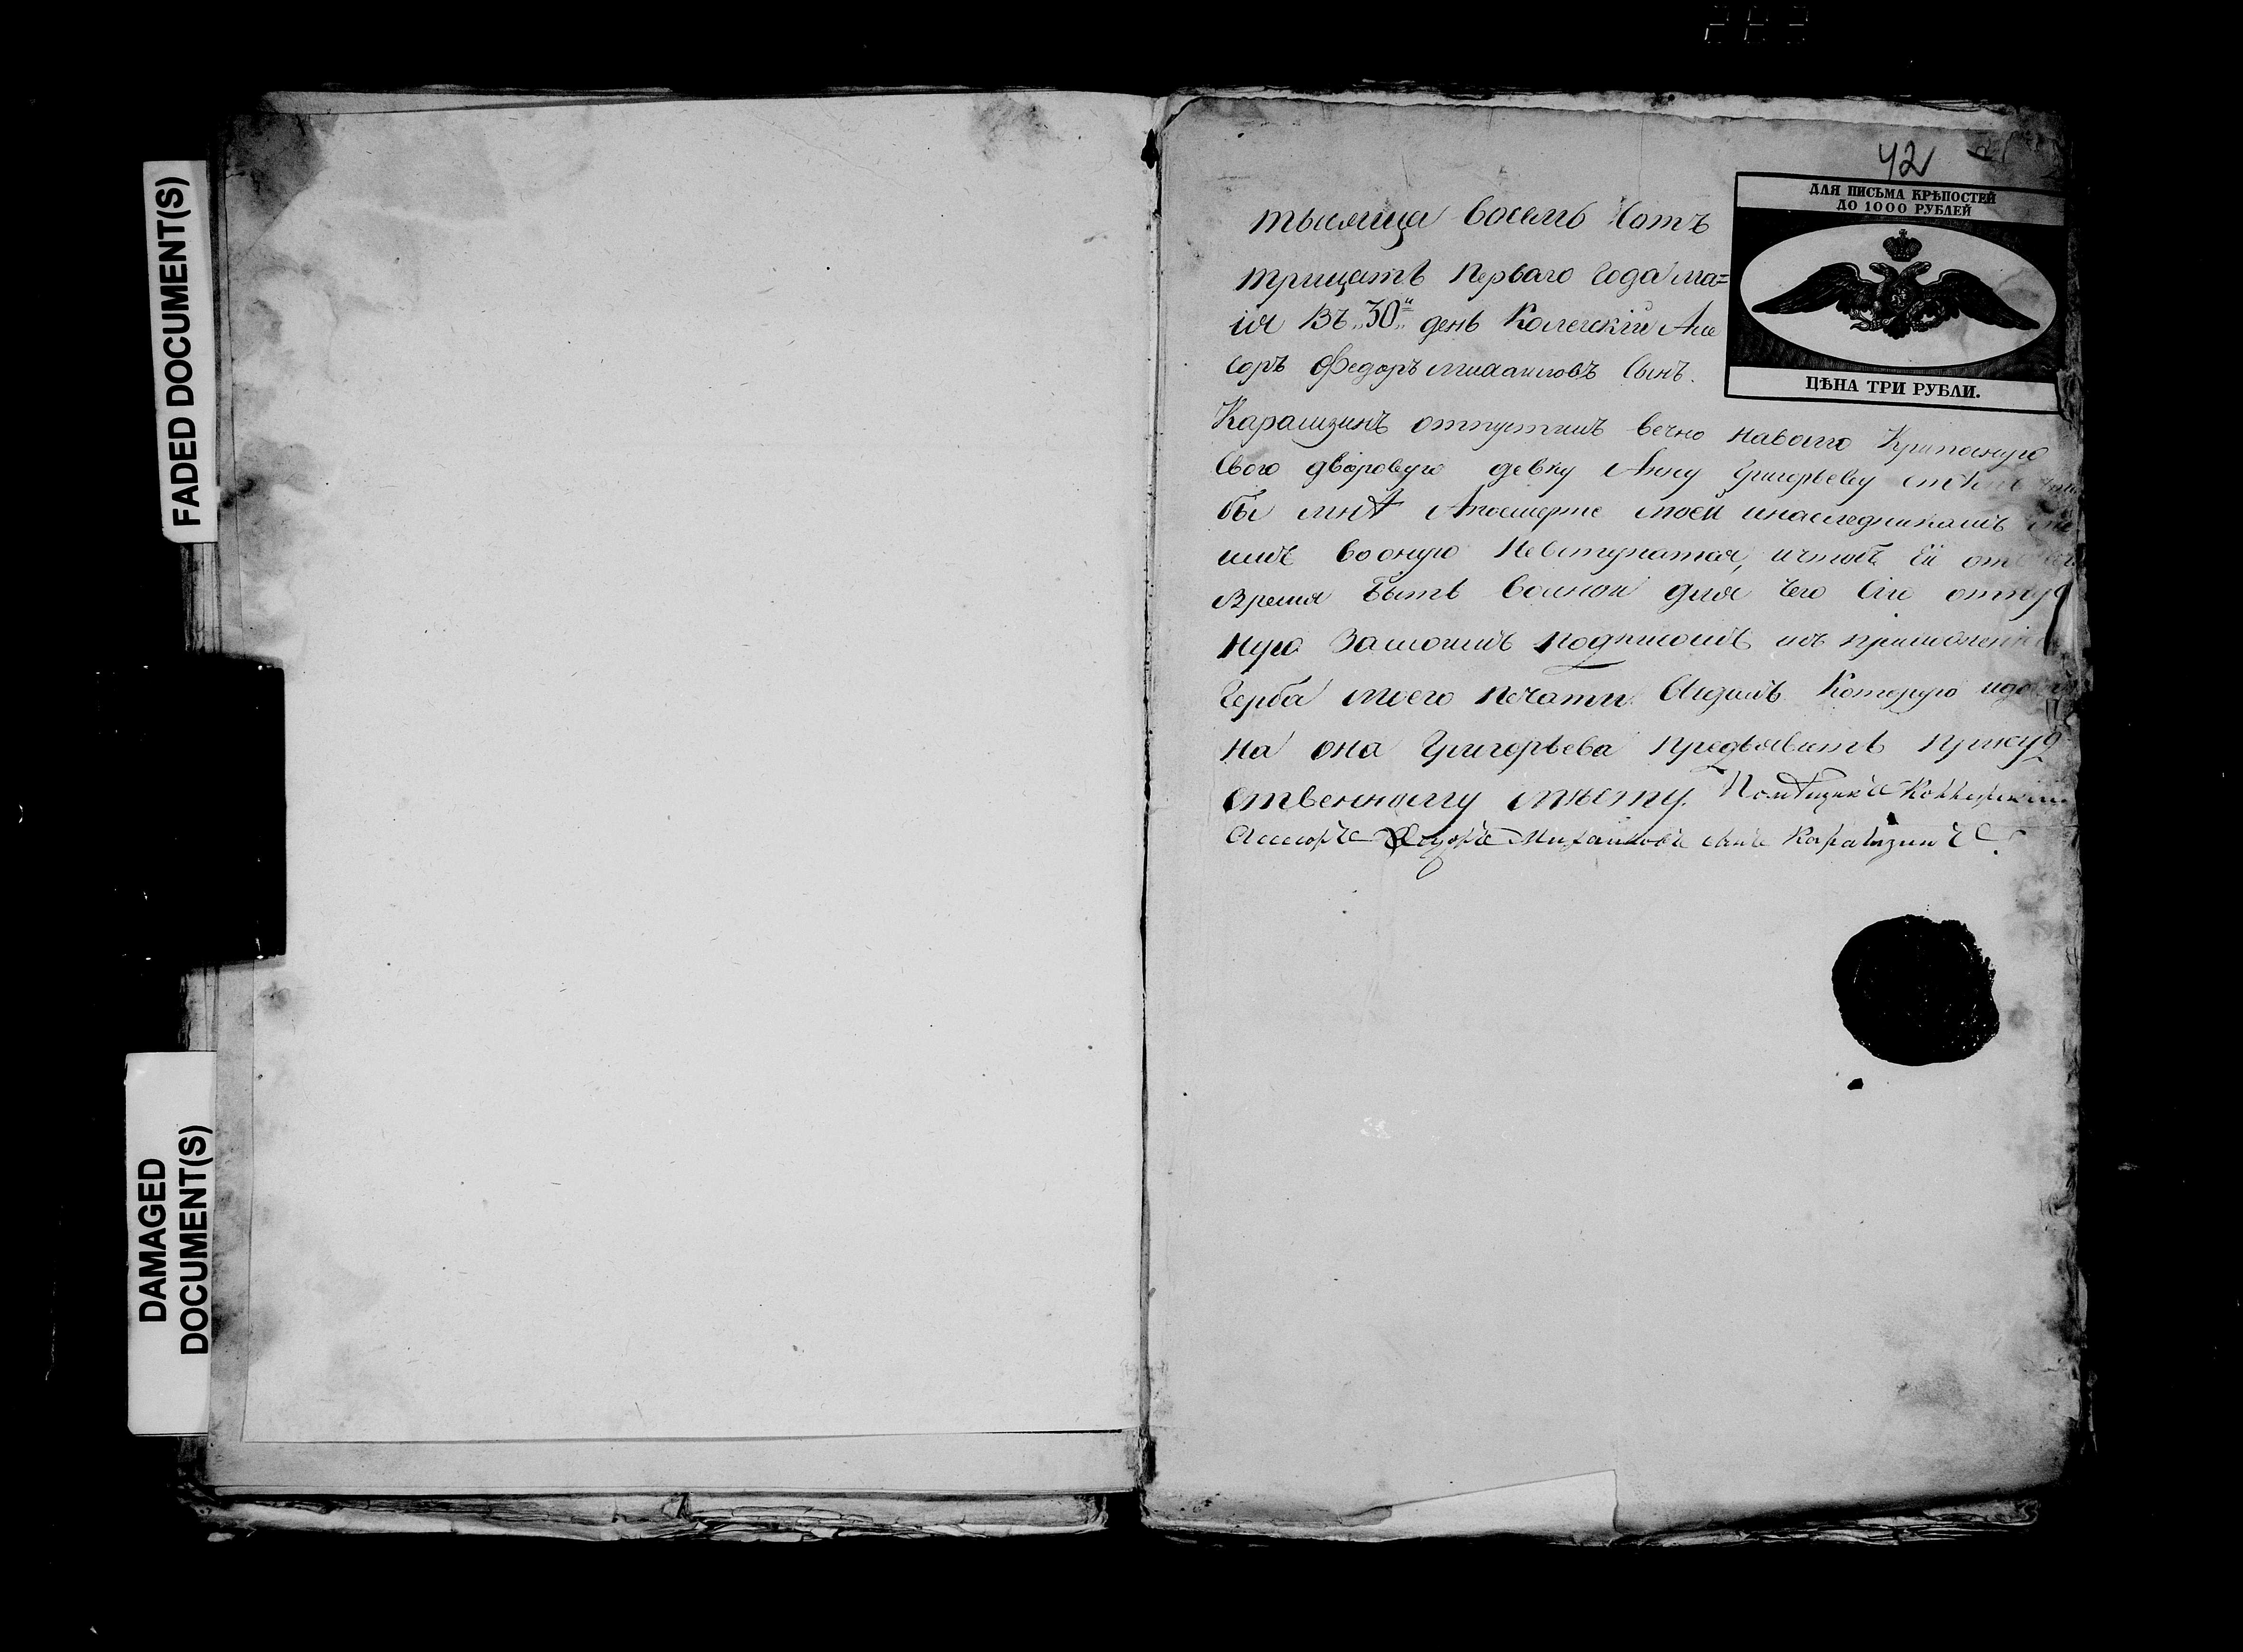 FADED DOCUMENT(S)
DAMAGED
DOCUMENT(S)
42
ДЛЯ ПИСЬМА КРѢПОСТЕЙ
ДО 1000 РУБЛЕЙ
ЦѢНА ТРИ РУБЛИ.
тысяща восемь сотъ
трицать перваго года ма=
ія въ „30„ день Колегскій Асе
соръ Федоръ михаиловъ сынъ.
Карамзинъ отпустилъ вечно наволю Крипосную
свою дворовую девку Анну Григорьеву
бы мнѣ Апосмерте моей инаследникамъ
имъ вооную невступатся, ичтобъ ей
время быть вольной для чего сію отпу
ную Замоимъ подписомъ исъ приложені
герба моего печати Андимъ Которую
на она Григорьева предъявить прису
ственному мѣсту. Помѣщикъ Коллежскій
Ассесоръ Федоръ Михайловъ сынъ Карамзинъ